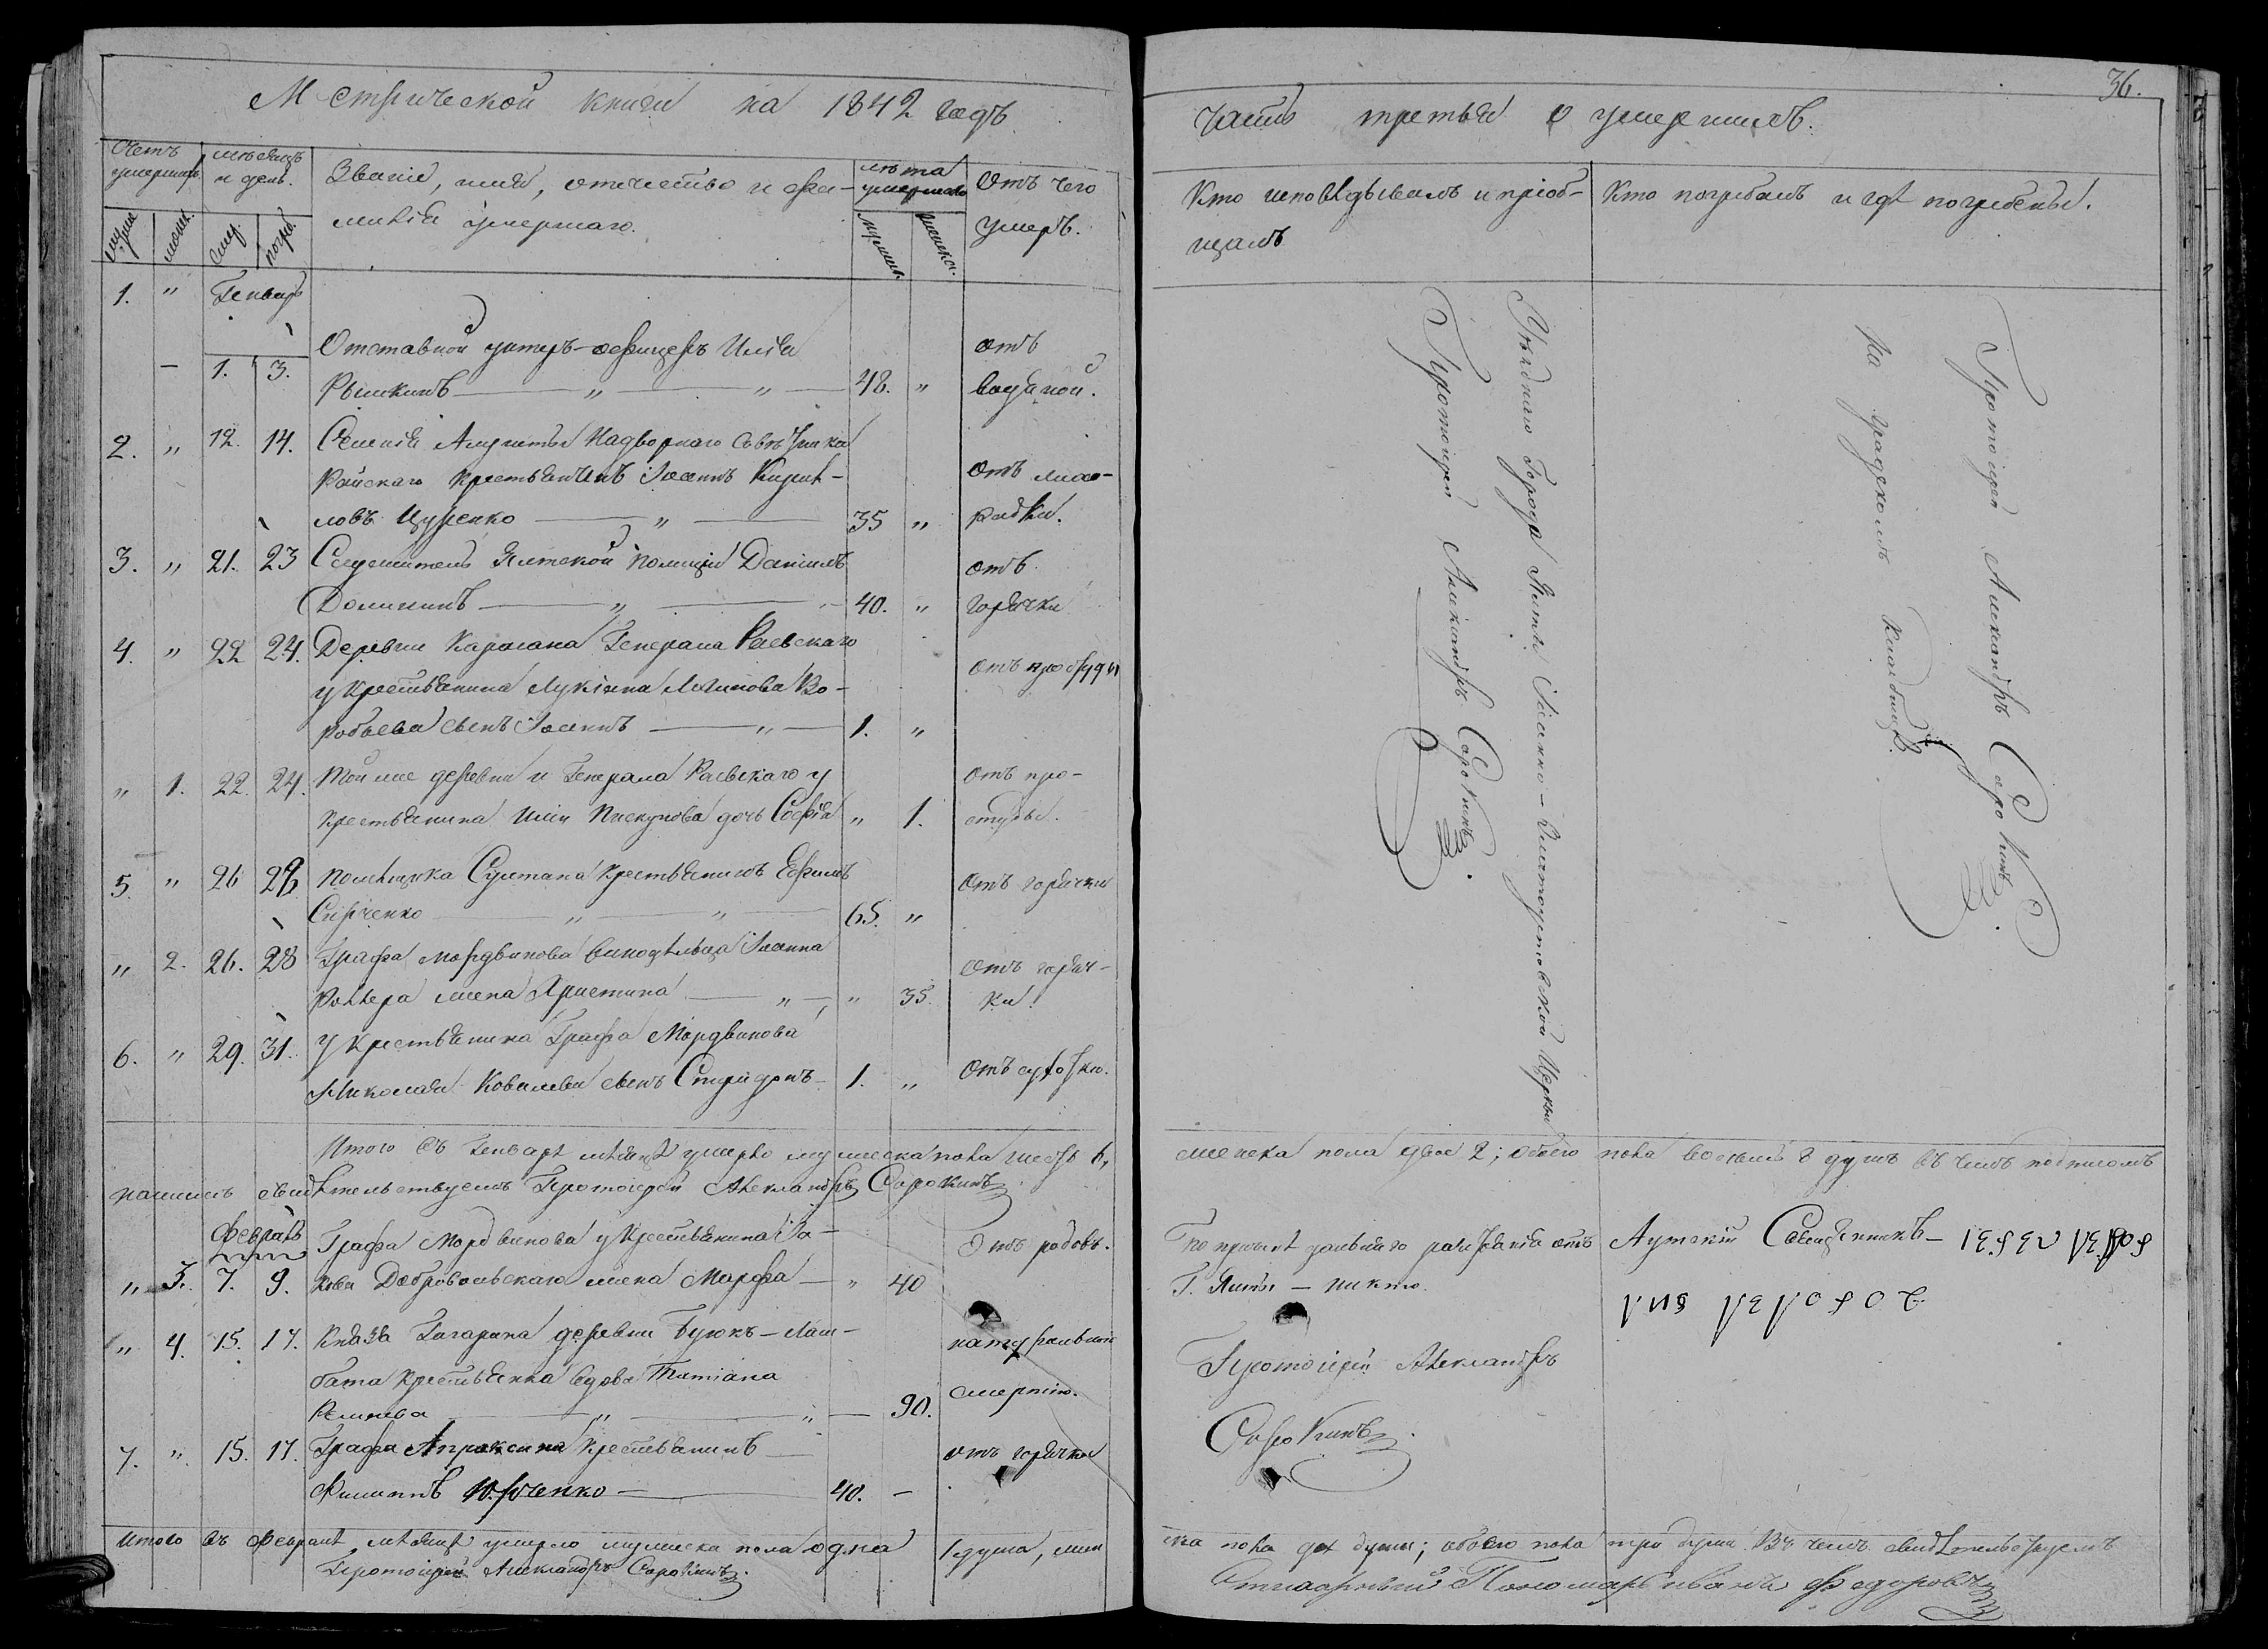 Метрической книги на 1842 годъ
Счетъ умершихъ.
мѣсяцъ и день.
Званіе, имя, отчество и фа-
милія умершаго.
лѣта умершаго
Отъ чего
умеръ.
муж.
женс.
смер.
погреб.
мужеск.
женска.
1. " Генварь
Отставной унтеръ-офицеръ Илія отъ
— 1. 3. Рышкинъ — " — " — 48. " водяной.
2. " 12. 14. Селенія Алушты Надворнаго Совѣтника
Райскаго крестьянинъ Іоаннъ Кирил- Отъ лихо-
ловъ Цуренко — " — 35 " радки.
3. " 21. 23 Служитель Ялтской полиціи Даніилъ отъ
Долининъ — " — 40. " горячки
4. " 22 24. Деревни Карасана Генерала Раевскаго
у крестьянина Лукіяна Во- Отъ простуды
робьева сынъ Іоаннъ — " — 1. "
" 1. 22. 24. Той же деревни и Генерала Раевскаго у Отъ про-
крестьянина Иліи Пискунова дочь Софія " 1. студы.
5. " 26 28. Помѣщика Султана крестьянинъ Ефимъ Отъ горячки
Сирченко — " — " — 65. "
" 2. 26. 28 Графа Мордвинова винодѣльца Іоанна Отъ горяч-
жена Христина — " — " 35. ки.
6. " 29. 31. У крестьянина Графа Мордвинова
Николая Ковалева сынъ Спиридонъ — 1. " Отъ сухотки.
Итого въ Генварѣ мѣсяцѣ умерло мужеска пола шесть 6,
нашимъ свидѣтельствуемъ Протоіерей Александръ Сорокинъ
Февраль Графа Мордвинова у крестьянина Іа- Отъ родовъ.
" 3. 7. 9. кова Добровольскаго жена Марфа — " 40
" 4. 15. 17. Князя Гагарина деревни Буюкъ-Лам- натуральною
бата крестьянка вдова Татіана смертію.
— " — " — 90.
7. " 15. 17. Графа Апраксина крестьянинъ — отъ горячки
Филиппъ Юрченко — 40. —
Итого въ Февралѣ мѣсяцѣ умерло мужеска пола одна 1 душа, жен
Протоіерей Александръ Сорокинъ.
36.
часть третья о умершихъ.
Кто исповѣдывалъ и пріоб-
щалъ
Кто погребалъ и гдѣ погребены.
Уѣзднаго Города Ялты Іоанно-Златоустовской Церкви
Протоіерей Александръ Сорокинъ.
Протоіерей Александръ Сорокинъ.
На градскомъ кладбищѣ.
женска пола двое 2; обоего пола восемь 8 душъ въ чемъ подписомъ
По причинѣ дальняго разстоянія отъ
Г. Ялты — никто.
Аутскій Священникъ —
Протоіерей Александръ
Сорокинъ.
ска пола двѣ души; обоего пола три души. Въ чемъ свидѣтельствуемъ
Пономарь Иванъ Федоровъ